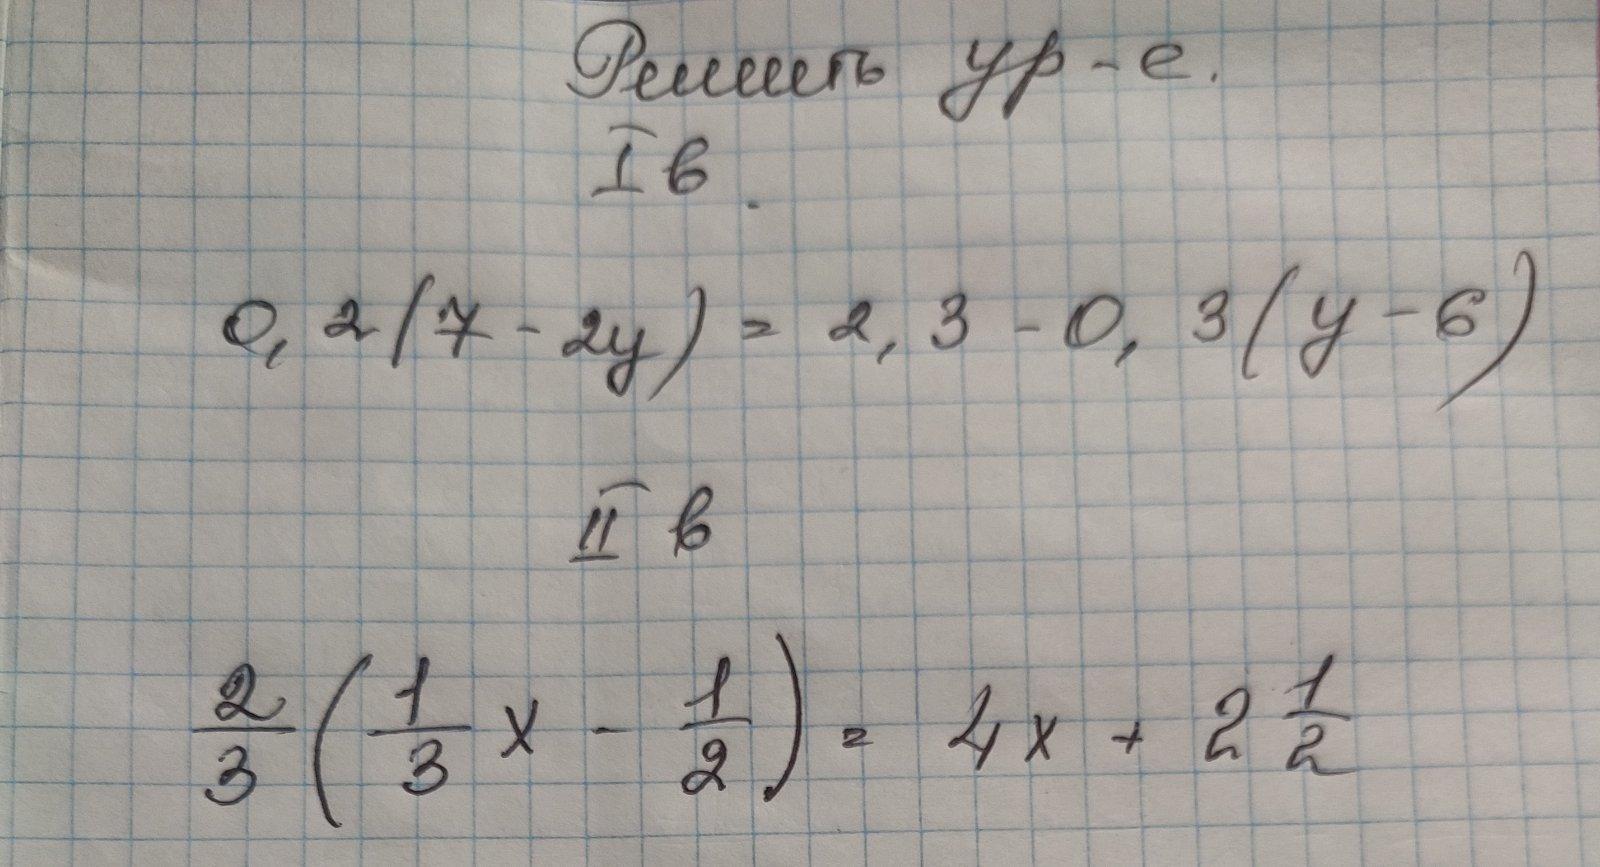 Решить ур-е.
I в.
0,2(7-2y) = 2,3-0,3(y-6)
II в
2/3(1/3x - 1/2) = 4x + 2 1/2